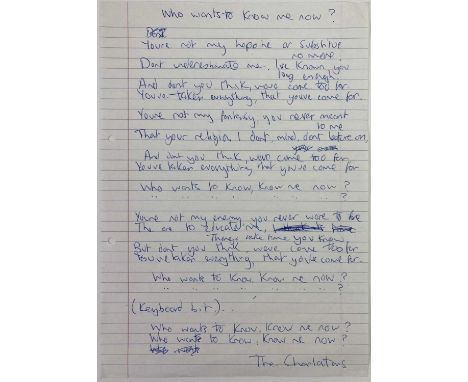 Who wants to know me now?
You're not my heroine or substitute
no more
Dont underestimate me, I've known you
long enough
And dont you think, weve come too far
You've taken everything, that youve come for.
You're not my fantasy, you never meant
to me
That your religion I dont mind, dont believe on,
And dont you think, weve come too far
You've taken everything that you've come for
Who wants to know, know me now?
" " " " " " ?
You're not my enemy you never were to be
The one to educate me,
There's take time you know
But dont you think, weve come too far
You've taken everything, that you've come for.
Who wants to know know me now?
" " " " " " ?
(Keyboard bit)...
Who wants to know, know me now?
Who wants to know, know me now?
The Charlatans